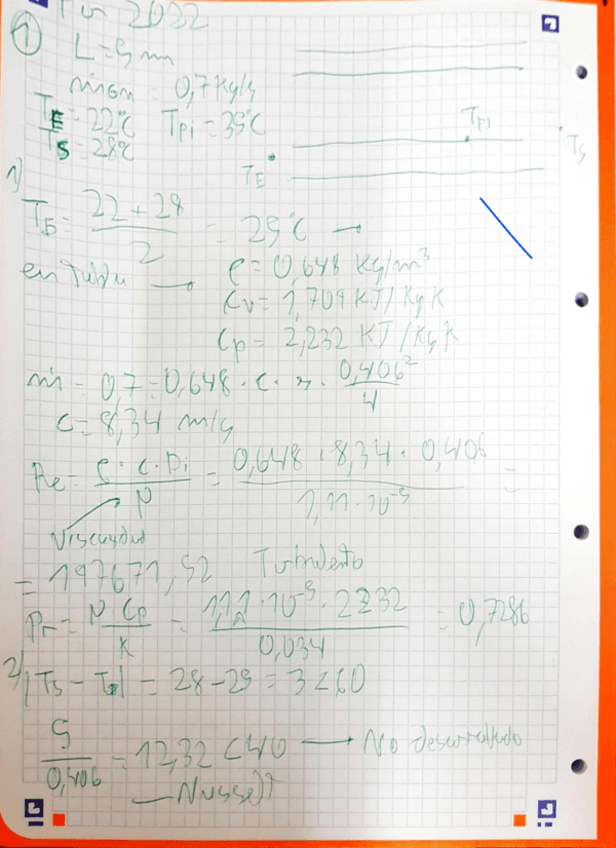 Jun 2022
1
L = 5 m
ṁ gas = 0,7 kg/s
T_E = 22°C T_pi = 35°C
T_S = 28°C
T_pi
T_S
T_E
1)
T_B = (22 + 28)/2 = 25°C →
en Tubo → ρ = 0,648 kg/m³
Cv = 1,709 KJ/kg K
Cp = 2,232 KJ/kg K
ṁ = 0,7 = 0,648 · c · π · 0,406²/4
c = 8,34 m/s
Re = (ρ · c · Di)/μ = (0,648 · 8,34 · 0,406)/(1,11 · 10⁻⁵) =
Viscosidad
= 197671,52 Turbulento
Pr = (μ Cp)/K = (1,11 · 10⁻⁵ · 2232)/0,034 = 0,7286
2) |Ts - Tb| = 28 - 25 = 3 < 60
5/0,406 = 12,32 < 40 → No desarrollado
— Nusselt